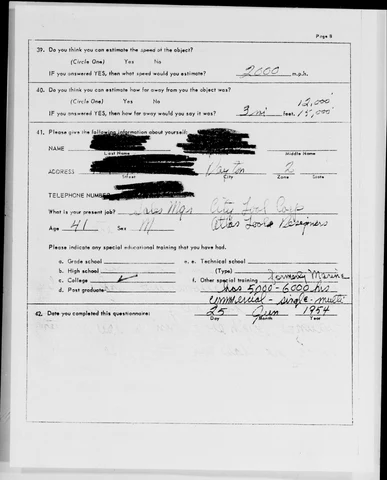 Page 8
39. Do you think you can estimate the speed of the object?
(Circle One) Yes No
IF you answered YES, then what speed would you estimate? 2000 m.p.h.
40. Do you think you can estimate how far away from you the object was?
(Circle One) Yes No 12,000'
IF you answered YES, then how far away would you say it was? 3 mi feet. 15,000'
41. Please give the following information about yourself:
NAME
Last Name Middle Name
ADDRESS Dayton 2
Street City Zone State
TELEPHONE NUMBER
What is your present job? Sales Mgr City Tool Corp
Age 41 Sex M Atlas Tool Designers
Please indicate any special educational training that you have had.
a. Grade school e. Technical school
b. High school (Type)
c. College ✓ f. Other special training formerly Marine
d. Post graduate has 5000-6000 hrs
commercial - single - multi
42. Date you completed this questionnaire: 25 Jun 1954
Day Month Year